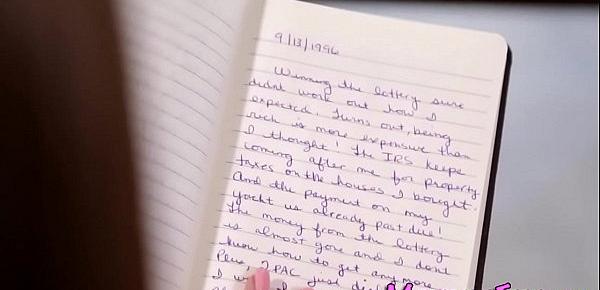 9/13/1996
Winning the lottery sure
didnt work out how I
expected. Turns out, being
rich is more expensive than
I thought! The IRS keeps
coming after me for property
taxes on the houses I bought.
And the payment on my
yacht is already past due!
The money from the lottery
is almost gone and I dont
know how to get any more
Plus, 2PAC just
I